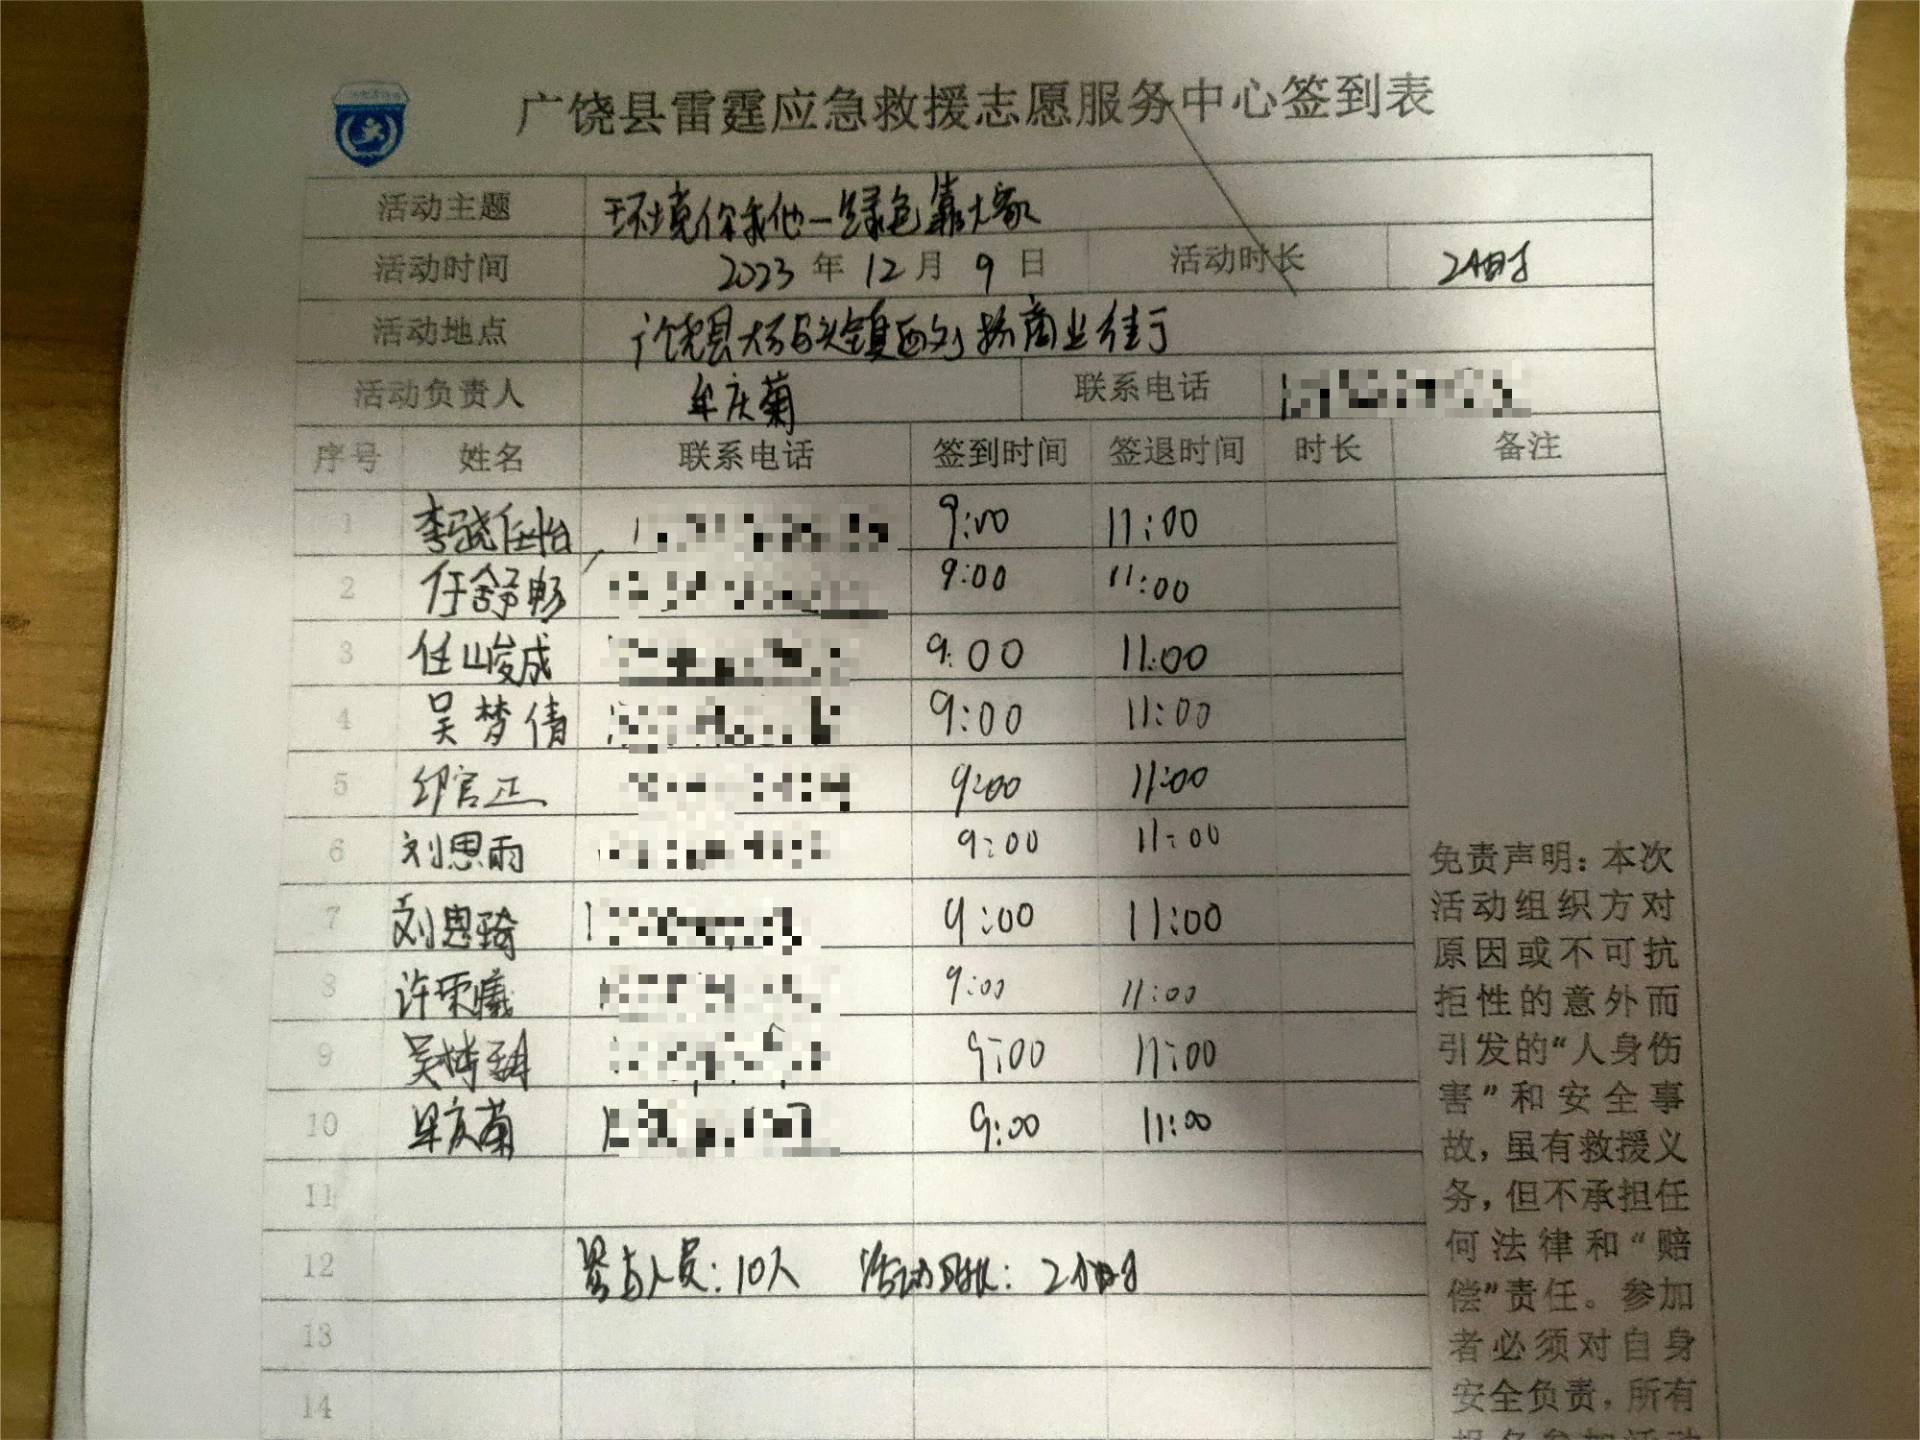 广饶县雷霆应急救援志愿服务中心签到表
活动主题 环境你我他一绿色靠大家
活动时间 2023年12月9日 活动时长 2小时
活动地点 广饶县大码头镇西刘桥商业街
活动负责人 牟庆菊 联系电话
序号 姓名 联系电话 签到时间 签退时间 时长 备注
1 李骁任怡 9:00 11:00
2 任舒畅 9:00 11:00
3 任峻成 9:00 11:00
4 吴梦倩 9:00 11:00
5 官正 9:00 11:00
6 刘思雨 9:00 11:00
7 刘恩琦 9:00 11:00
8 许荣曦 9:00 11:00
9 吴 9:00 11:00
10 牟庆菊 9:00 11:00
11
12 参与人员:10人 活动时长:2小时
13
14
免责声明:本次
活动组织方对
原因或不可抗
拒性的意外而
引发的“人身伤
害”和安全事
故,虽有救援义
务,但不承担任
何法律和“赔
偿”责任。参加
者必须对自身
安全负责,所有
报名参加活动